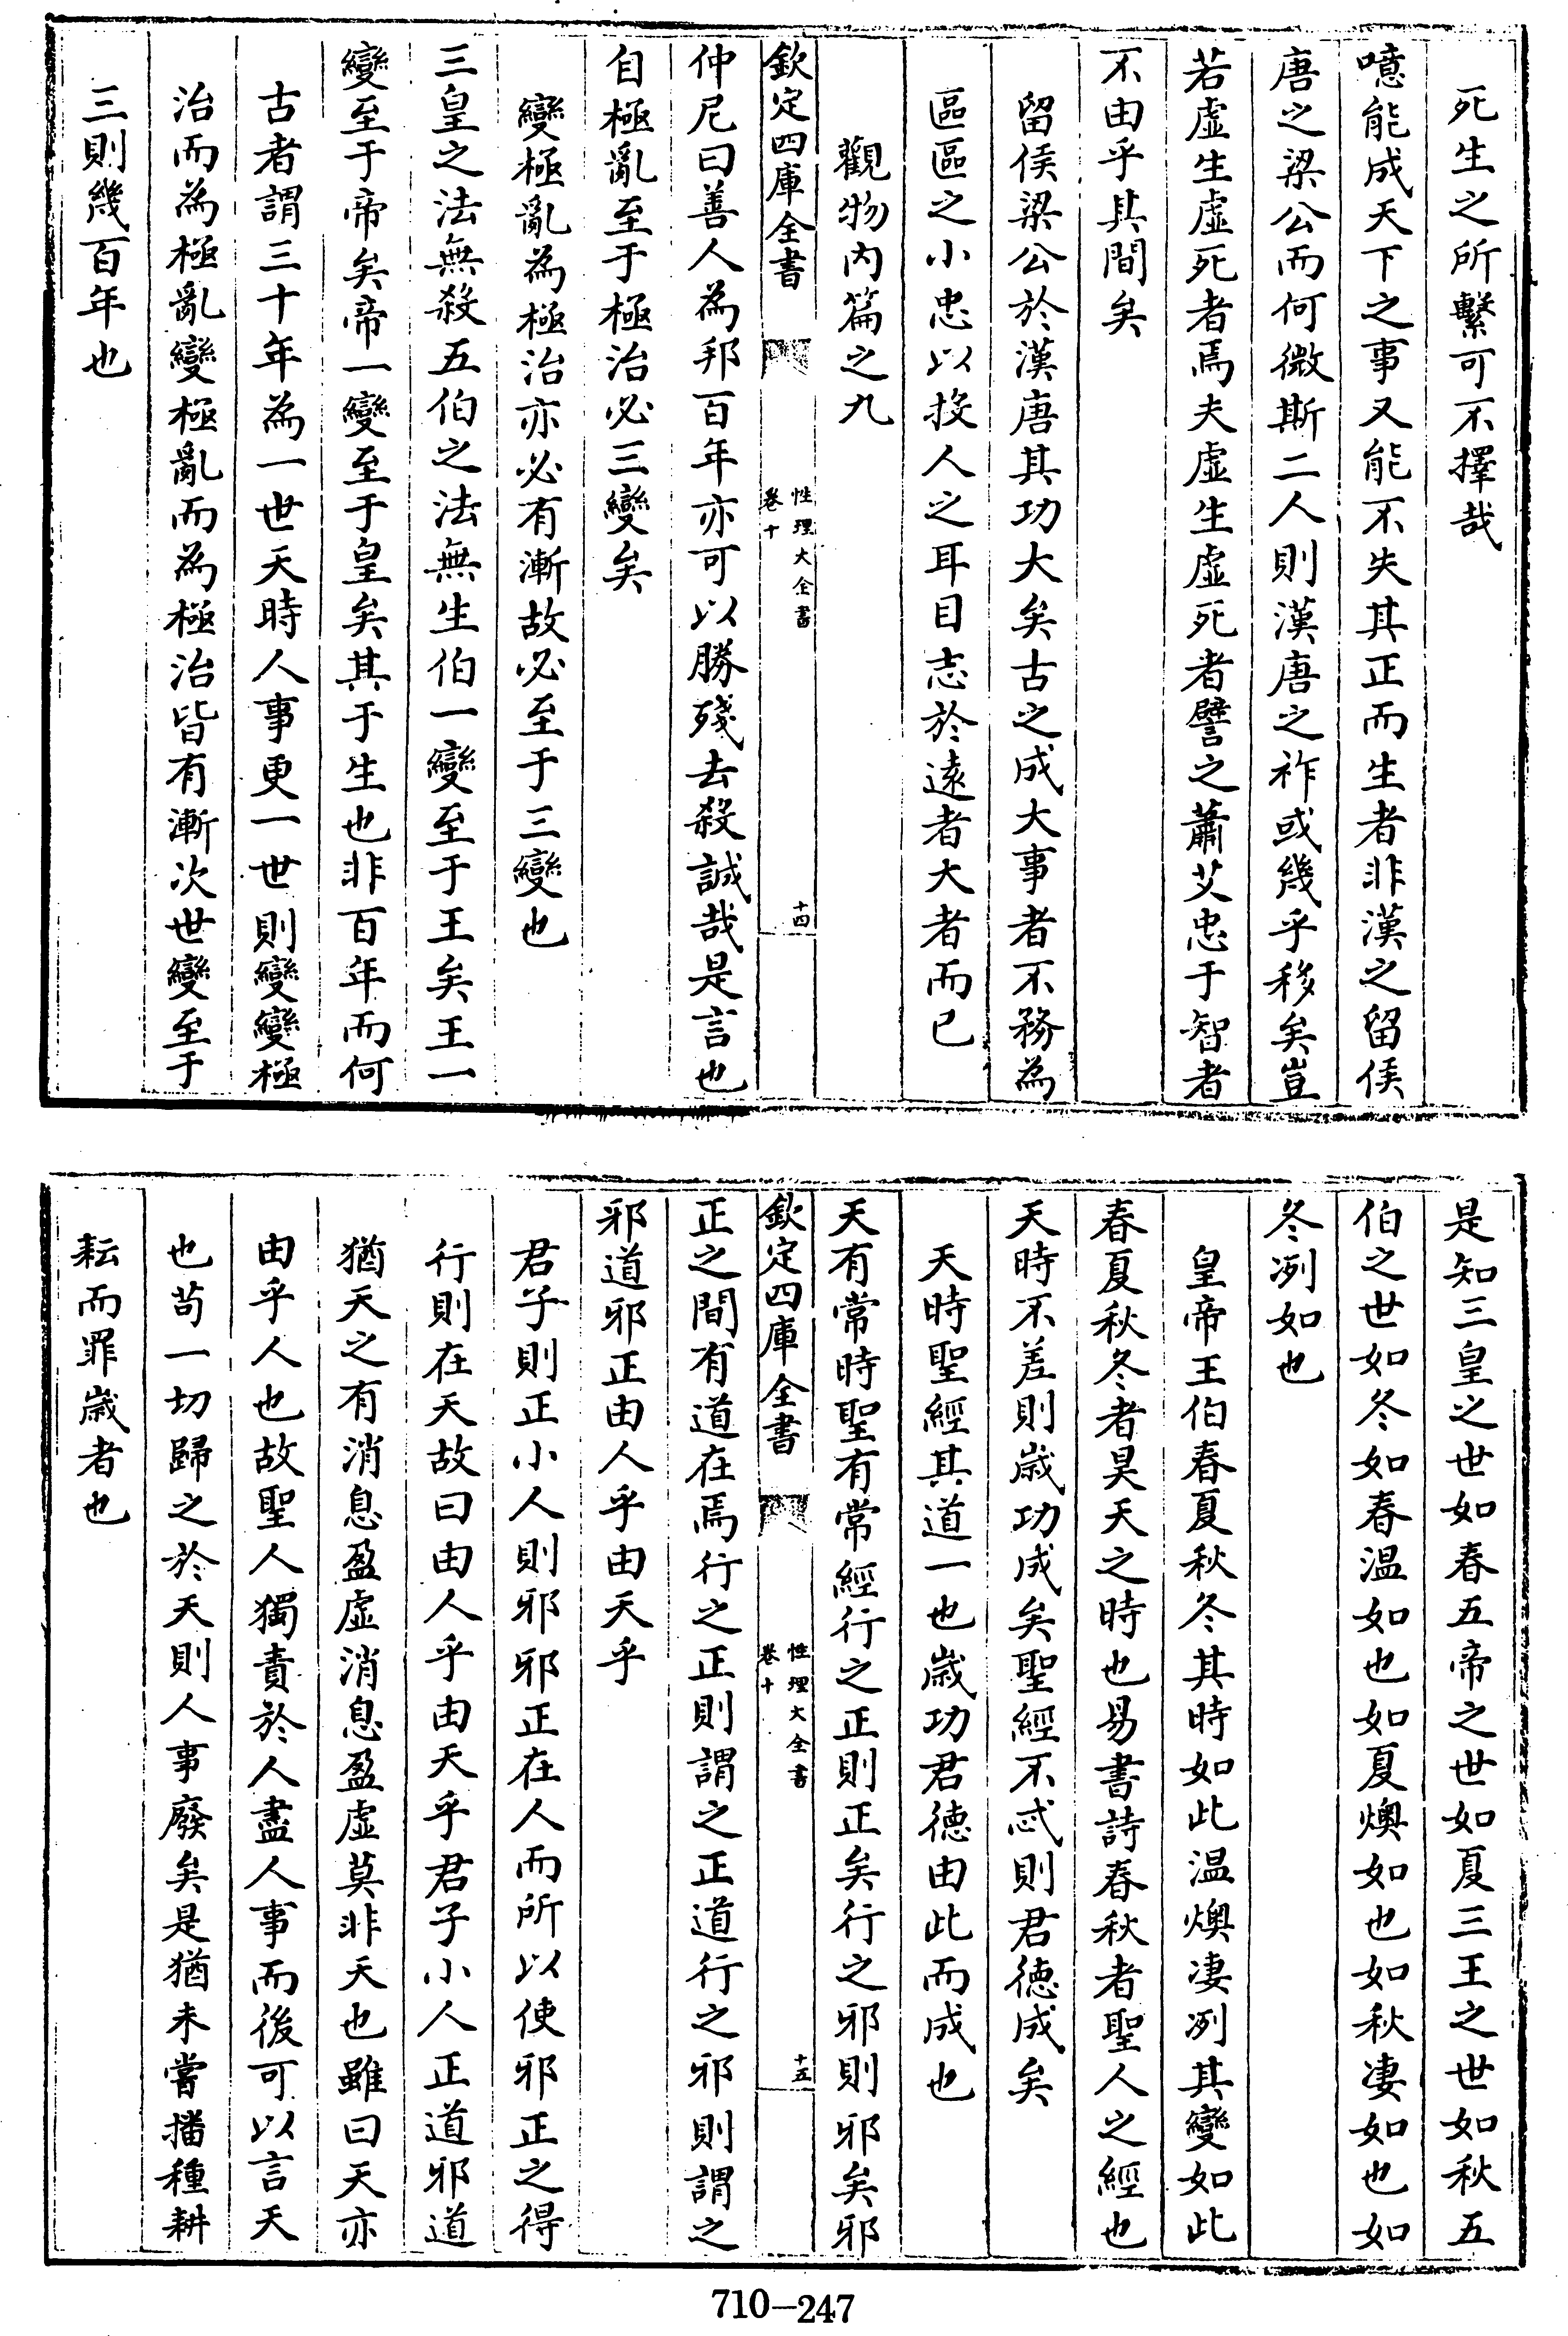 死生之所繫可不擇哉
噫能成天下之事又能不失其正而生者非漢之留侯
唐之梁公而何微斯二人則漢唐之祚或幾乎移矣豈
若虛生虛死者焉夫虛生虛死者譬之蕭艾忠于智者
不由乎其間矣
留侯梁公於漢唐其功大矣古之成大事者不務為
區區之小忠以投人之耳目志於遠者大者而已
觀物內篇之九
欽定四庫全書
性理大全書
卷十
十四
仲尼曰善人為邦百年亦可以勝殘去殺誠哉是言也
自極亂至于極治必三變矣
變極亂為極治亦必有漸故必至于三變也
三皇之法無殺五伯之法無生伯一變至于王矣王一
變至于帝矣帝一變至于皇矣其于生也非百年而何
古者謂三十年為一世天時人事更一世則變變極
治而為極亂變極亂而為極治皆有漸次世變至于
三則幾百年也
是知三皇之世如春五帝之世如夏三王之世如秋五
伯之世如冬如春温如也如夏燠如也如秋凄如也如
冬冽如也
皇帝王伯春夏秋冬其時如此温燠凄冽其變如此
春夏秋冬者昊天之時也易書詩春秋者聖人之經也
天時不差則嵗功成矣聖經不忒則君徳成矣
天時聖經其道一也嵗功君徳由此而成也
天有常時聖有常經行之正則正矣行之邪則邪矣邪
欽定四庫全書
性理大全書
卷十
十五
正之間有道在焉行之正則謂之正道行之邪則謂之
邪道邪正由人乎由天乎
君子則正小人則邪邪正在人而所以使邪正之得
行則在天故曰由人乎由天乎君子小人正道邪道
猶天之有消息盈虛消息盈虛莫非天也雖曰天亦
由乎人也故聖人獨責於人盡人事而後可以言天
也茍一切歸之於天則人事廢矣是猶未嘗播種耕
耘而罪嵗者也
710-247